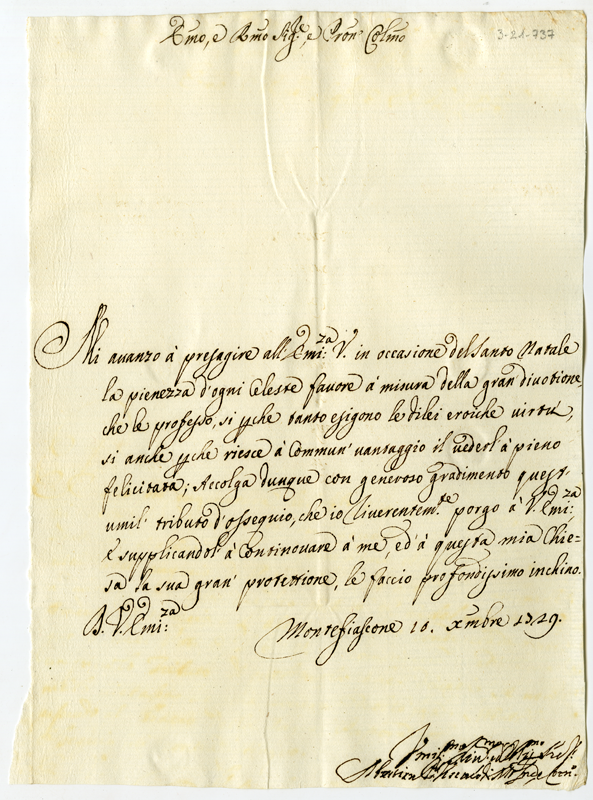 Emo, e Rmo Sig.e, e Pron Colmo
3-21-737
Mi avanzo à presagire all'Emi:za V. in occasione del Santo Natale
la pienezza d'ogni Celeste favore à misura della gran divotione,
che le professo, si pche tanto esigono le dilei eroiche virtù,
si anche pche riesce à Commun' vantaggio il vederl'à pieno
felicitata; Accolga dunque con generoso gradimento quest'
umil' tributo d'ossequio, che io Riverentem.te porgo à V. Emi:za
E supplicandol' à Continovare à me, ed'à questa mia Chie=
sa la sua gran' protettione, le faccio profondissimo inchino.
D. V. Emi:za
Montefiascone 10. Xmbre 1729.